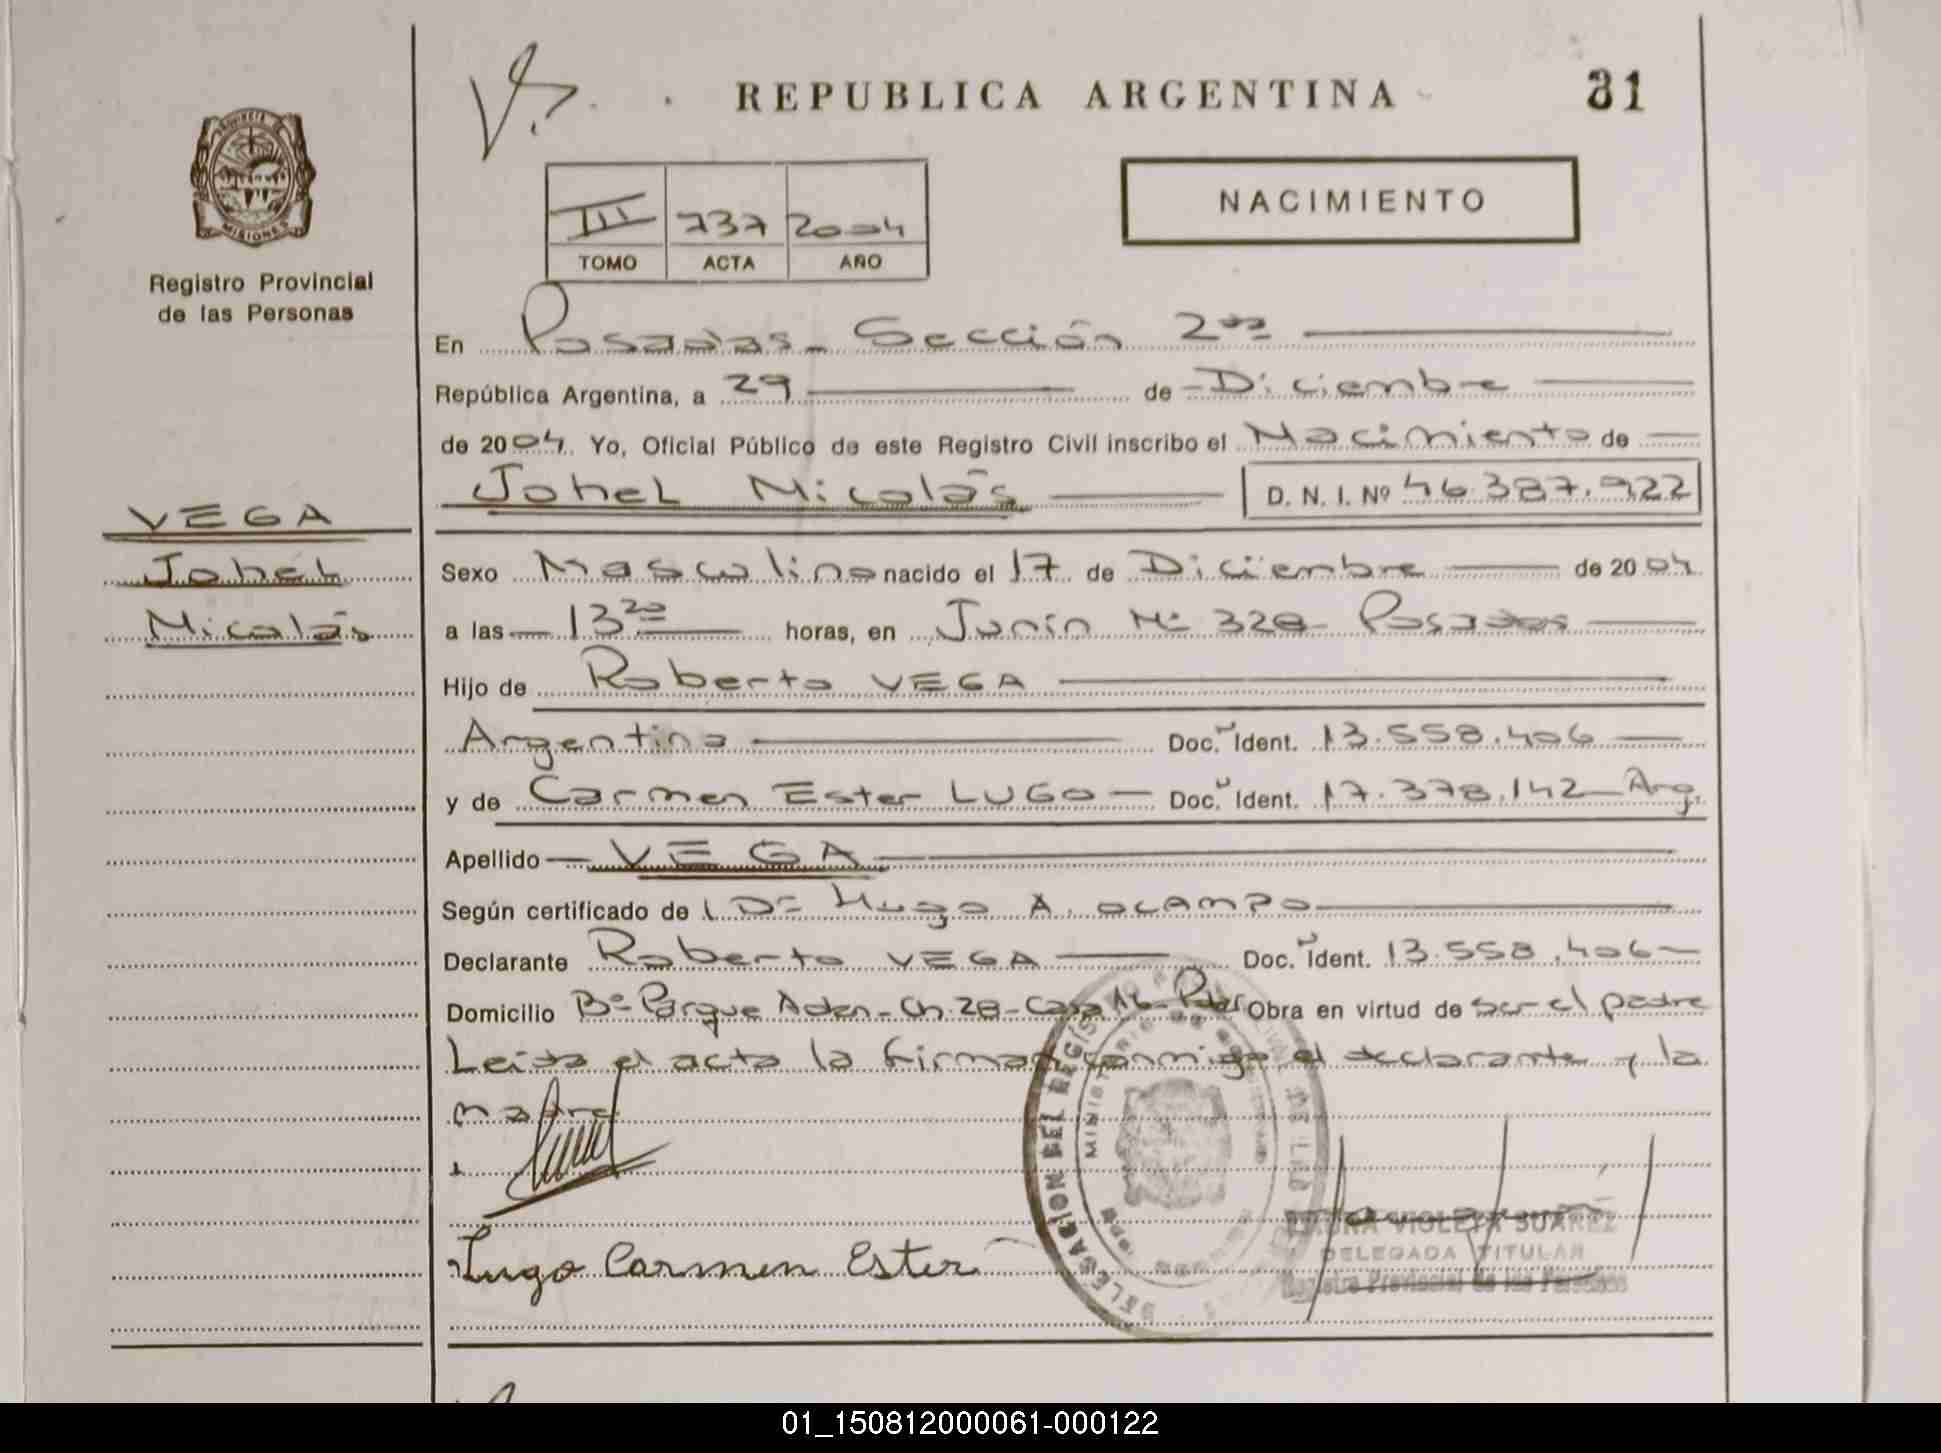 REPUBLICA ARGENTINA
31
PROVINCIA DE
MISIONES
Registro Provincial
de las Personas
III 737 2004
TOMO ACTA AÑO
NACIMIENTO
En Posadas - Sección 2da
República Argentina, a 29 de Diciembre
de 2004. Yo, Oficial Público de este Registro Civil inscribo el Nacimiento de
Johel Nicolás D. N. I. Nº 46.387.922
VEGA
Johel
Nicolás
Sexo Masculino nacido el 17 de Diciembre de 2004
a las 13 20 horas, en Junín Nº 328 - Posadas
Hijo de Roberto VEGA
Argentino Doc. Ident. 13.558.406
y de Carmen Ester LUGO - Doc. Ident. 17.378.142 - Arg.
Apellido VEGA
Según certificado de Dr Hugo A. OCAMPO
Declarante Roberto VEGA Doc. Ident. 13.558.406
Domicilio Bº Parque Aden - Ch. 28 - Casa 16 - Pdas Obra en virtud de ser el padre
Leida el acta la firman conmigo el declarante y la
madre
Lugo Carmen Ester
DELEGACION DEL REGISTRO
VIOLETA SUAREZ
DELEGADA TITULAR
Registro Provincial de las Personas
01_150812000061-000122